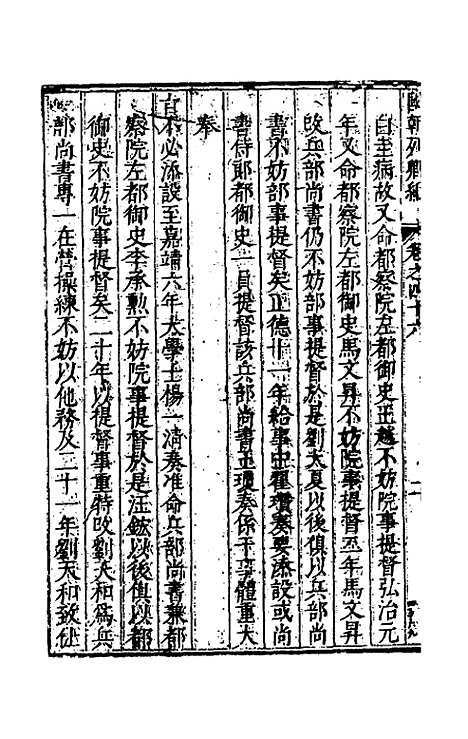 國朝列卿紀 卷之四十六
自圭病故又命都察院左都御史王越不妨院事提督弘治元
年又命都察院左都御史馬文昇不妨院事提督至年馬文昇
改兵部尚書仍不妨部事提督於是劉大夏以後俱以兵部尚
書不妨部事提督矣正德十一年給事中瓚奏要添設或尚
書侍郎都御史一員提督該兵部尚書王瓊奏係干事體重大
奉
旨不必添設至嘉靖六年大學士楊一清奏准命兵部尚書兼都
察院左都御史李承勲不妨院事提督於是汪鋐以後俱以都
御史不妨院事提督矣二十年以提督事重特改劉天和為兵
部尚書專一在營操練不妨以他務及二十一年劉天和致仕